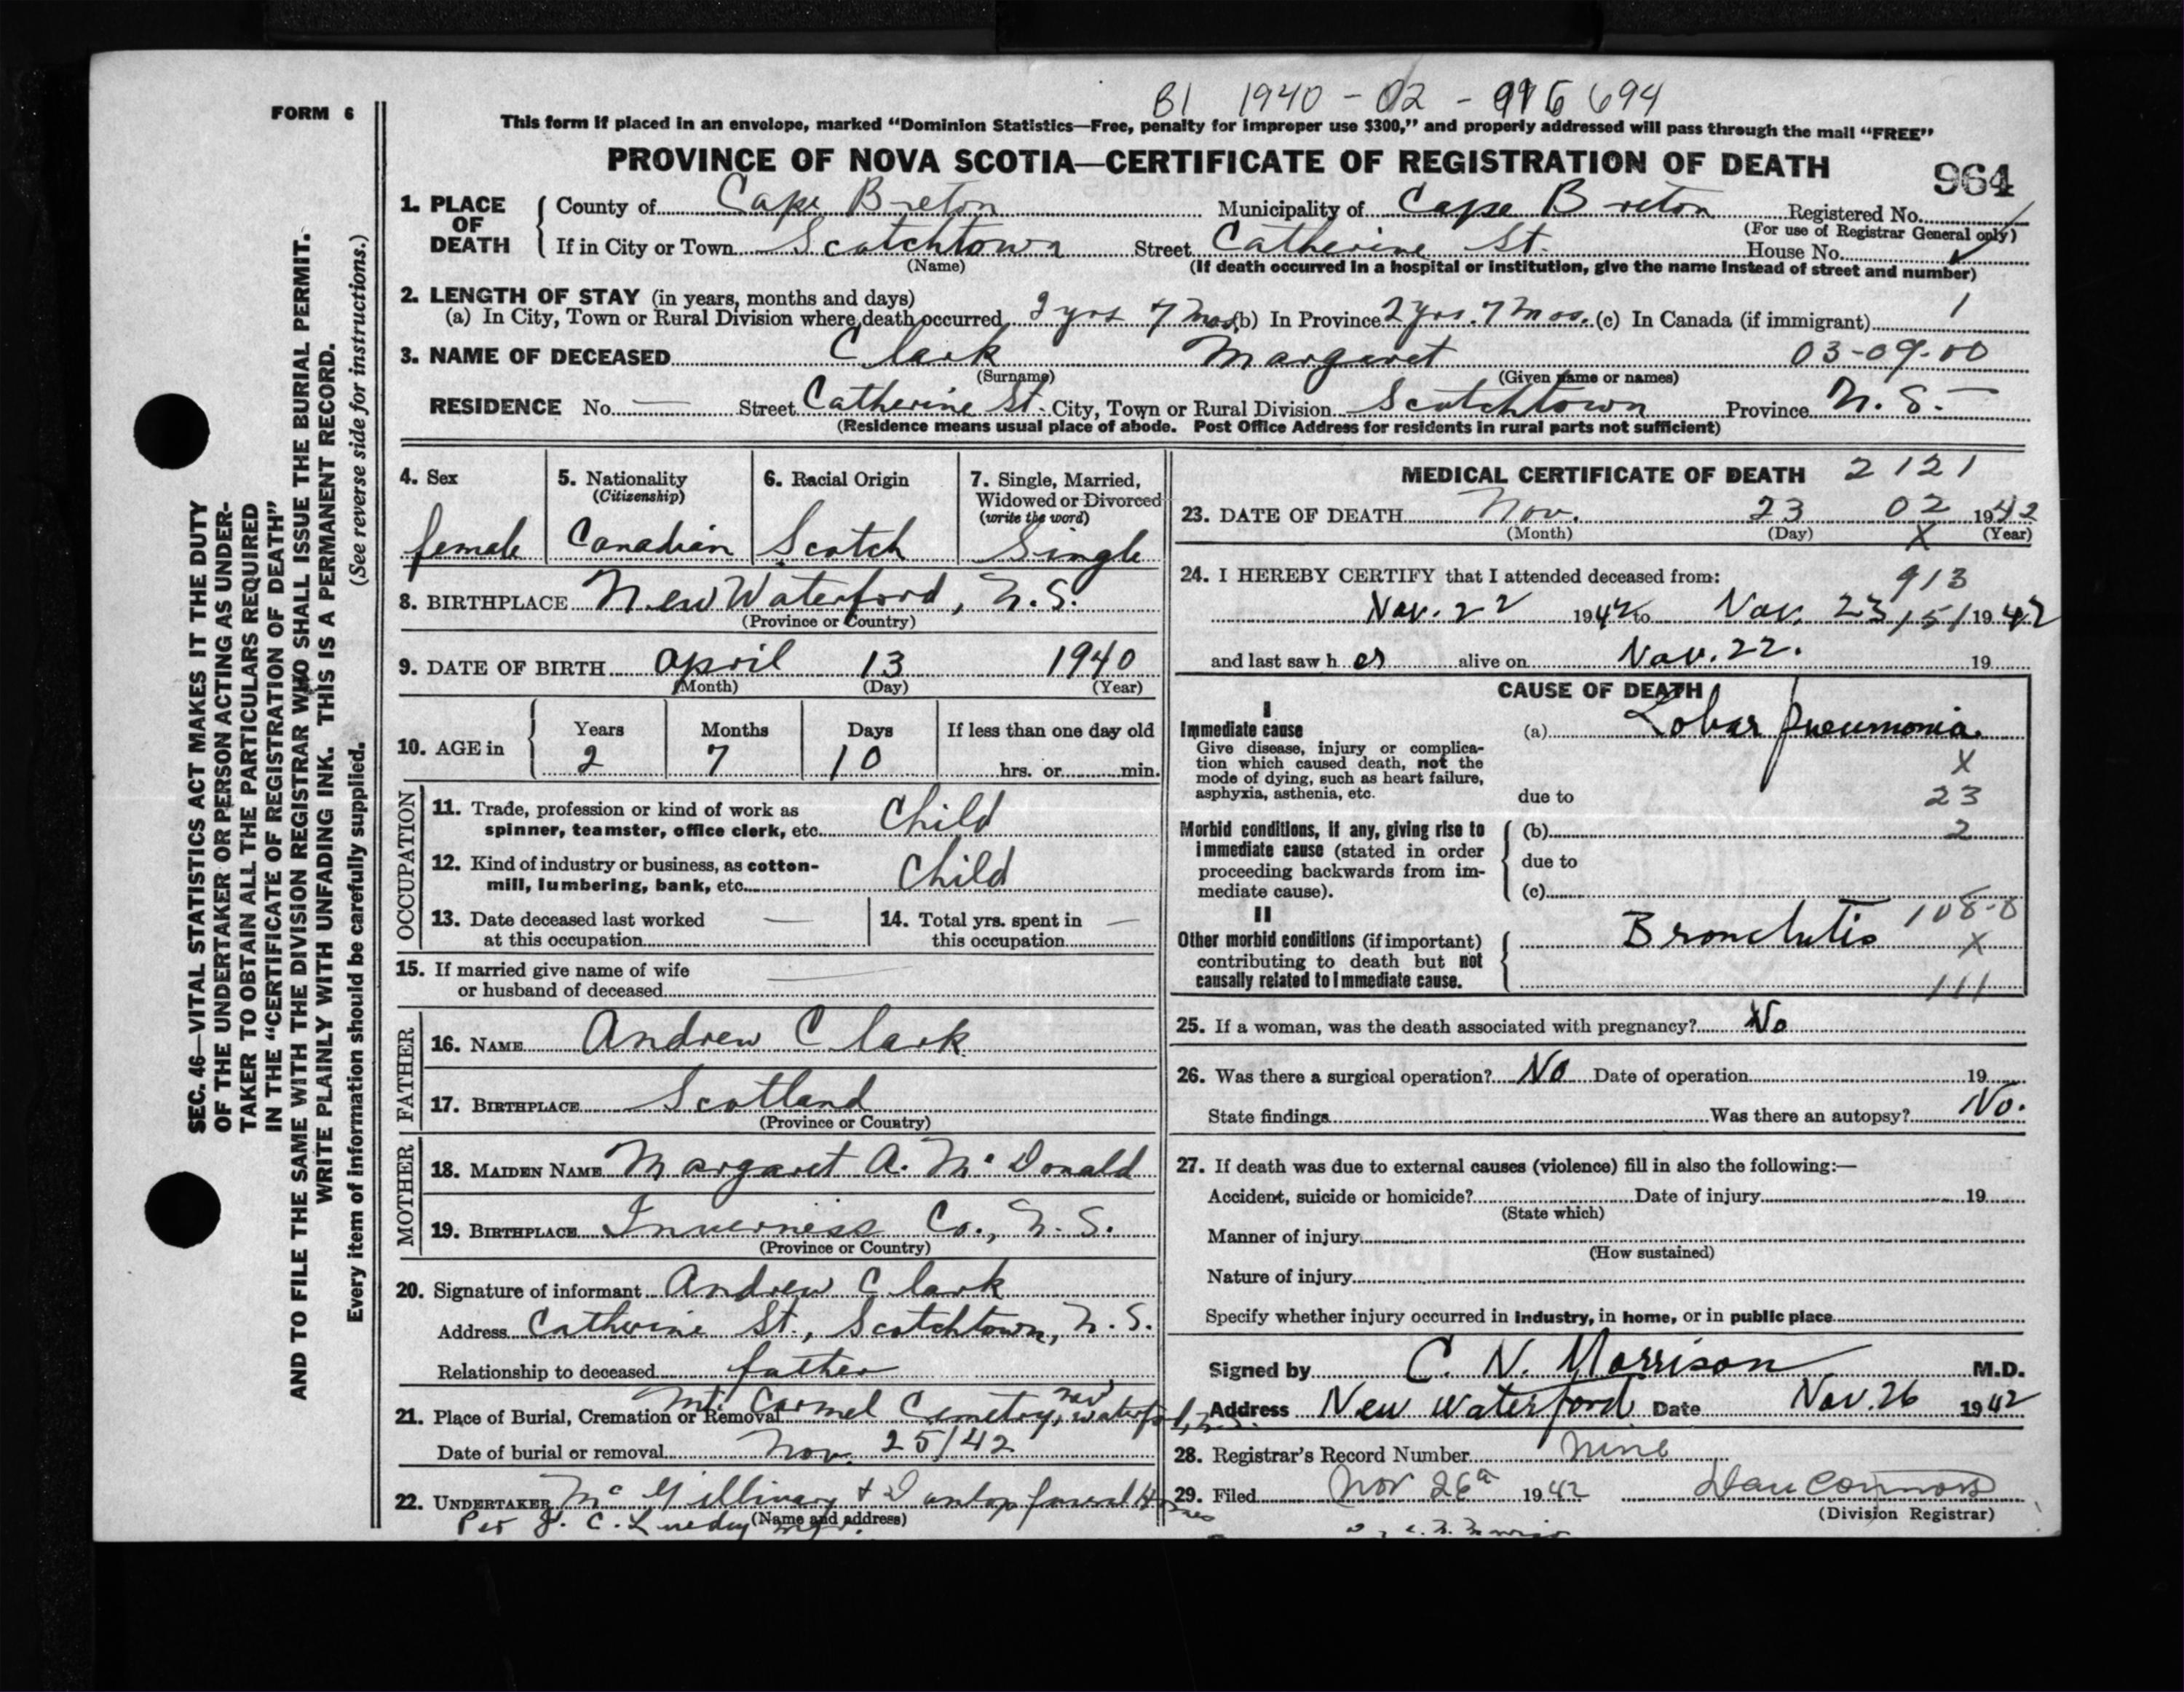 B1 1940 - 02 - 916 694
FORM 6
This form if placed in an envelope, marked “Dominion Statistics—Free, penalty for improper use $300,” and properly addressed will pass through the mail “FREE”
PROVINCE OF NOVA SCOTIA—CERTIFICATE OF REGISTRATION OF DEATH
964
1. PLACE OF DEATH
County of Cape Breton Municipality of Cape Breton Registered No.
(For use of Registrar General only)
If in City or Town Scotchtown Street Catherine St. House No. ✓
(Name) (If death occurred in a hospital or institution, give the name instead of street and number)
2. LENGTH OF STAY (in years, months and days)
(a) In City, Town or Rural Division where death occurred 2 yrs 7 mos (b) In Province 2 yrs. 7 mos. (c) In Canada (if immigrant) 1
3. NAME OF DECEASED Clark Margaret 03-09-00
(Surname) (Given name or names)
RESIDENCE No. — Street Catherine St. City, Town or Rural Division Scotchtown Province N. S. —
(Residence means usual place of abode. Post Office Address for residents in rural parts not sufficient)
4. Sex female
5. Nationality (Citizenship) Canadian
6. Racial Origin Scotch
7. Single, Married, Widowed or Divorced (write the word) Single
8. BIRTHPLACE New Waterford, N.S.
(Province or Country)
9. DATE OF BIRTH April 13 1940
(Month) (Day) (Year)
10. AGE in Years Months Days If less than one day old
2 7 10 hrs. or min.
OCCUPATION
11. Trade, profession or kind of work as
spinner, teamster, office clerk, etc. Child
12. Kind of industry or business, as cotton-
mill, lumbering, bank, etc. Child
13. Date deceased last worked —
at this occupation
14. Total yrs. spent in —
this occupation
15. If married give name of wife —
or husband of deceased
FATHER
16. NAME Andrew Clark
17. BIRTHPLACE Scotland
(Province or Country)
MOTHER
18. MAIDEN NAME Margaret A. McDonald
19. BIRTHPLACE Inverness Co., N. S.
(Province or Country)
20. Signature of informant Andrew Clark
Address Catherine St., Scotchtown, N. S.
Relationship to deceased father
21. Place of Burial, Cremation or Removal Mt. Carmel Cemetry, New Waterford, N.S.
Date of burial or removal Nov. 25/42
22. UNDERTAKER McGillivary & Dunlop funeral Homes
(Name and address)
Per J. C.
MEDICAL CERTIFICATE OF DEATH 2121
23. DATE OF DEATH Nov. 23 02 1942
(Month) (Day) X (Year)
24. I HEREBY CERTIFY that I attended deceased from: 913
Nov. 22 1942 to Nov. 23 151 1942
and last saw her alive on Nov. 22. 19
CAUSE OF DEATH
I
Immediate cause (a) Lobar pneumonia.
Give disease, injury or complica-
tion which caused death, not the
mode of dying, such as heart failure,
asphyxia, asthenia, etc.
X
due to 23
Morbid conditions, if any, giving rise to
immediate cause (stated in order
proceeding backwards from im-
mediate cause).
(b) 2
due to
(c)
108-0
II
Other morbid conditions (if important)
contributing to death but not
causally related to immediate cause.
Bronchitis X
111
25. If a woman, was the death associated with pregnancy? No
26. Was there a surgical operation? No Date of operation 19
State findings Was there an autopsy? No.
27. If death was due to external causes (violence) fill in also the following:—
Accident, suicide or homicide? Date of injury 19
(State which)
Manner of injury
(How sustained)
Nature of injury
Specify whether injury occurred in industry, in home, or in public place
Signed by C. N. Morrison M.D.
Address New Waterford Date Nov. 26 1942
28. Registrar's Record Number nine
29. Filed Nov 26 1942 Dan Connors
(Division Registrar)
SEC. 46—VITAL STATISTICS ACT MAKES IT THE DUTY
OF THE UNDERTAKER OR PERSON ACTING AS UNDER-
TAKER TO OBTAIN ALL THE PARTICULARS REQUIRED
IN THE “CERTIFICATE OF REGISTRATION OF DEATH”
AND TO FILE THE SAME WITH THE DIVISION REGISTRAR WHO SHALL ISSUE THE BURIAL PERMIT.
WRITE PLAINLY WITH UNFADING INK. THIS IS A PERMANENT RECORD.
Every item of information should be carefully supplied. (See reverse side for instructions.)